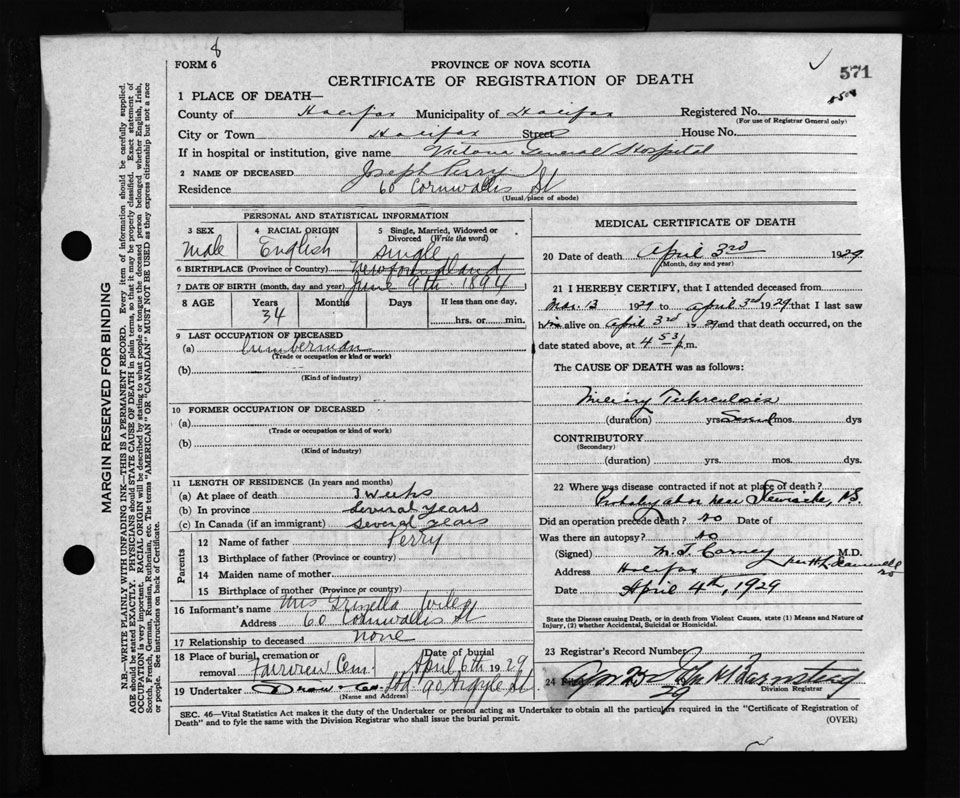 8
FORM 6
PROVINCE OF NOVA SCOTIA
571
CERTIFICATE OF REGISTRATION OF DEATH
1 PLACE OF DEATH—
County of Halifax Municipality of Halifax Registered No.
(For use of Registrar General only)
City or Town Halifax Street House No.
If in hospital or institution, give name Victoria General Hospital
2 NAME OF DECEASED Joseph Perry
Residence 60 Cornwallis St
(Usual place of abode)
PERSONAL AND STATISTICAL INFORMATION
3 SEX 4 RACIAL ORIGIN 5 Single, Married, Widowed or Divorced (Write the word)
Male English Single
6 BIRTHPLACE (Province or Country) Newfoundland
7 DATE OF BIRTH (month, day and year) June 9th 1894
8 AGE Years Months Days If less than one day,
34 hrs. or min.
9 LAST OCCUPATION OF DECEASED
(a) Lumberman
(Trade or occupation or kind or work)
(b)
(Kind of industry)
10 FORMER OCCUPATION OF DECEASED
(a)
(Trade or occupation or kind of work)
(b)
(Kind of industry)
11 LENGTH OF RESIDENCE (In years and months)
(a) At place of death 3 Weeks
(b) In province Several years
(c) In Canada (if an immigrant) Several years
Parents
12 Name of father Perry
13 Birthplace of father (Province or country)
14 Maiden name of mother
15 Birthplace of mother (Province or country)
16 Informant's name Mrs
Address 60 Cornwallis St
17 Relationship to deceased none
18 Place of burial, cremation or removal Fairview Cem. Date of burial April 6th 1929
19 Undertaker Snow & Co. Ltd 90 Argyle St.
(Name and Address)
MEDICAL CERTIFICATE OF DEATH
20 Date of death April 3rd 1929.
(Month, day and year)
21 I HEREBY CERTIFY, that I attended deceased from
Mar. 13 1929 to April 3rd 1929 that I last saw
him alive on April 3rd 1929 and that death occurred, on the
date stated above, at 4 53 p.m.
The CAUSE OF DEATH was as follows:
Miliary Tuberculosis
(duration) yrs. Several mos. dys
CONTRIBUTORY
(Secondary)
(duration) yrs. mos. dys.
22 Where was disease contracted if not at place of death?
Probably at or near N.B.
Did an operation precede death? no Date of
Was there an autopsy? no
(Signed) M. J. Carney M.D.
Address Halifax
Date April 4th, 1929
State the Disease causing Death, or in death from Violent Causes, state (1) Means and Nature of Injury, (2) whether Accidental, Suicidal or Homicidal.
23 Registrar's Record Number
24 Filed
29
Division Registrar
SEC. 46—Vital Statistics Act makes it the duty of the Undertaker or person acting as Undertaker to obtain all the particulars required in the "Certificate of Registration of
Death" and to fyle the same with the Division Registrar who shall issue the burial permit.
(OVER)
MARGIN RESERVED FOR BINDING
N.B.—WRITE PLAINLY WITH UNFADING INK—THIS IS A PERMANENT RECORD. Every item of information should be carefully supplied.
AGE should be stated EXACTLY. PHYSICIANS should STATE CAUSE OF DEATH in plain terms, so that it may be properly classified. Exact statement of
OCCUPATION is very important. RACIAL ORIGIN will be described by stating to what people or tongue the deceased person belonged whether English, Irish,
Scotch, French, German, Russian, Ruthenian, etc. The terms "AMERICAN" OR "CANADIAN" MUST NOT BE USED as they express citizenship but not a race
or people. See instructions on back of Certificate.